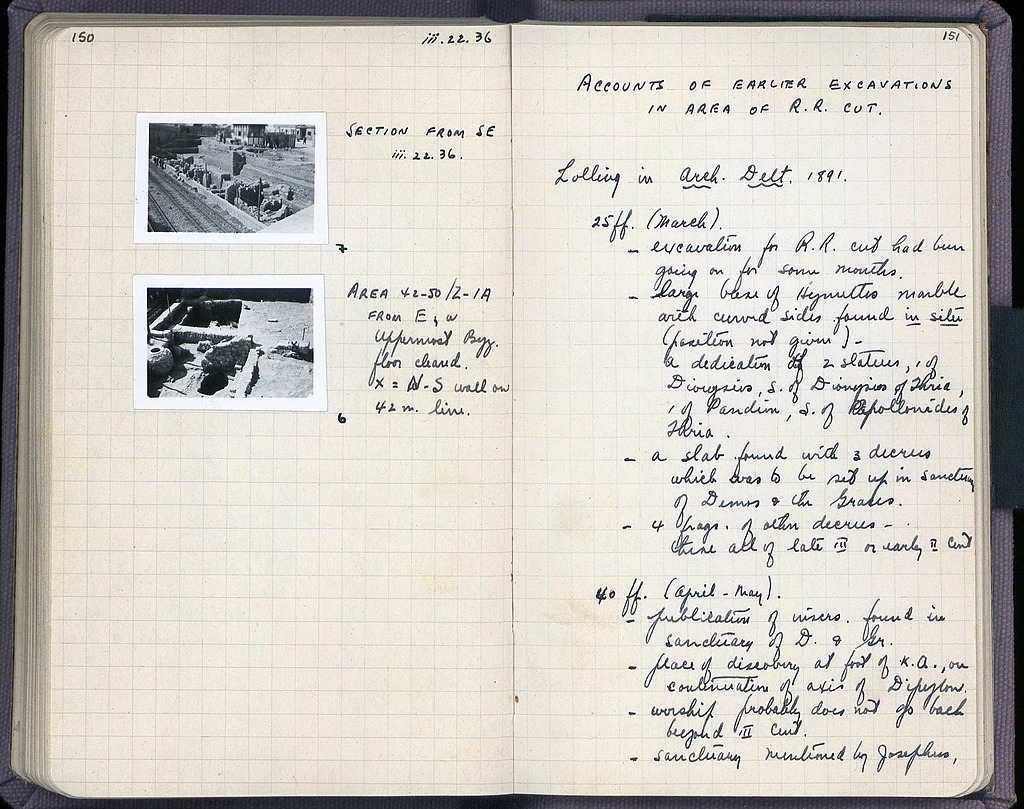 150
iii.22.36
SECTION FROM SE
iii.22.36.
7
AREA 42-50/Z-1A
FROM E; w
Uppermost Byz.
floor cleared.
X = N-S wall on
42 m. line.
6
151
ACCOUNTS OF EARLIER EXCAVATIONS
IN AREA OF R.R. CUT.
Lolling in Arch. Delt. 1891.
25 ff. (March).
- excavation for R.R. cut had been
going on for some months.
- large base of Hymettos marble
with curved sides found in situ
(position not given) -
a dedication of 2 statues, 1 of
Dionysios, s. of Dionysios of Thria,
1 of Pandion, s. of Apollonides of
Thria.
- a slab found with 3 decrees
which was to be set up in sanctuary
of Demos & the Graces.
- 4 frags. of other decrees -
these all of late III or early II cent
40 ff. (April - May).
- publication of inscrs. found in
sanctuary of D. & Gr.
- place of discovery at foot of K.A., on
continuation of axis of Dipylon.
- worship probably does not go back
beyond III cent.
- sanctuary mentioned by Josephus,